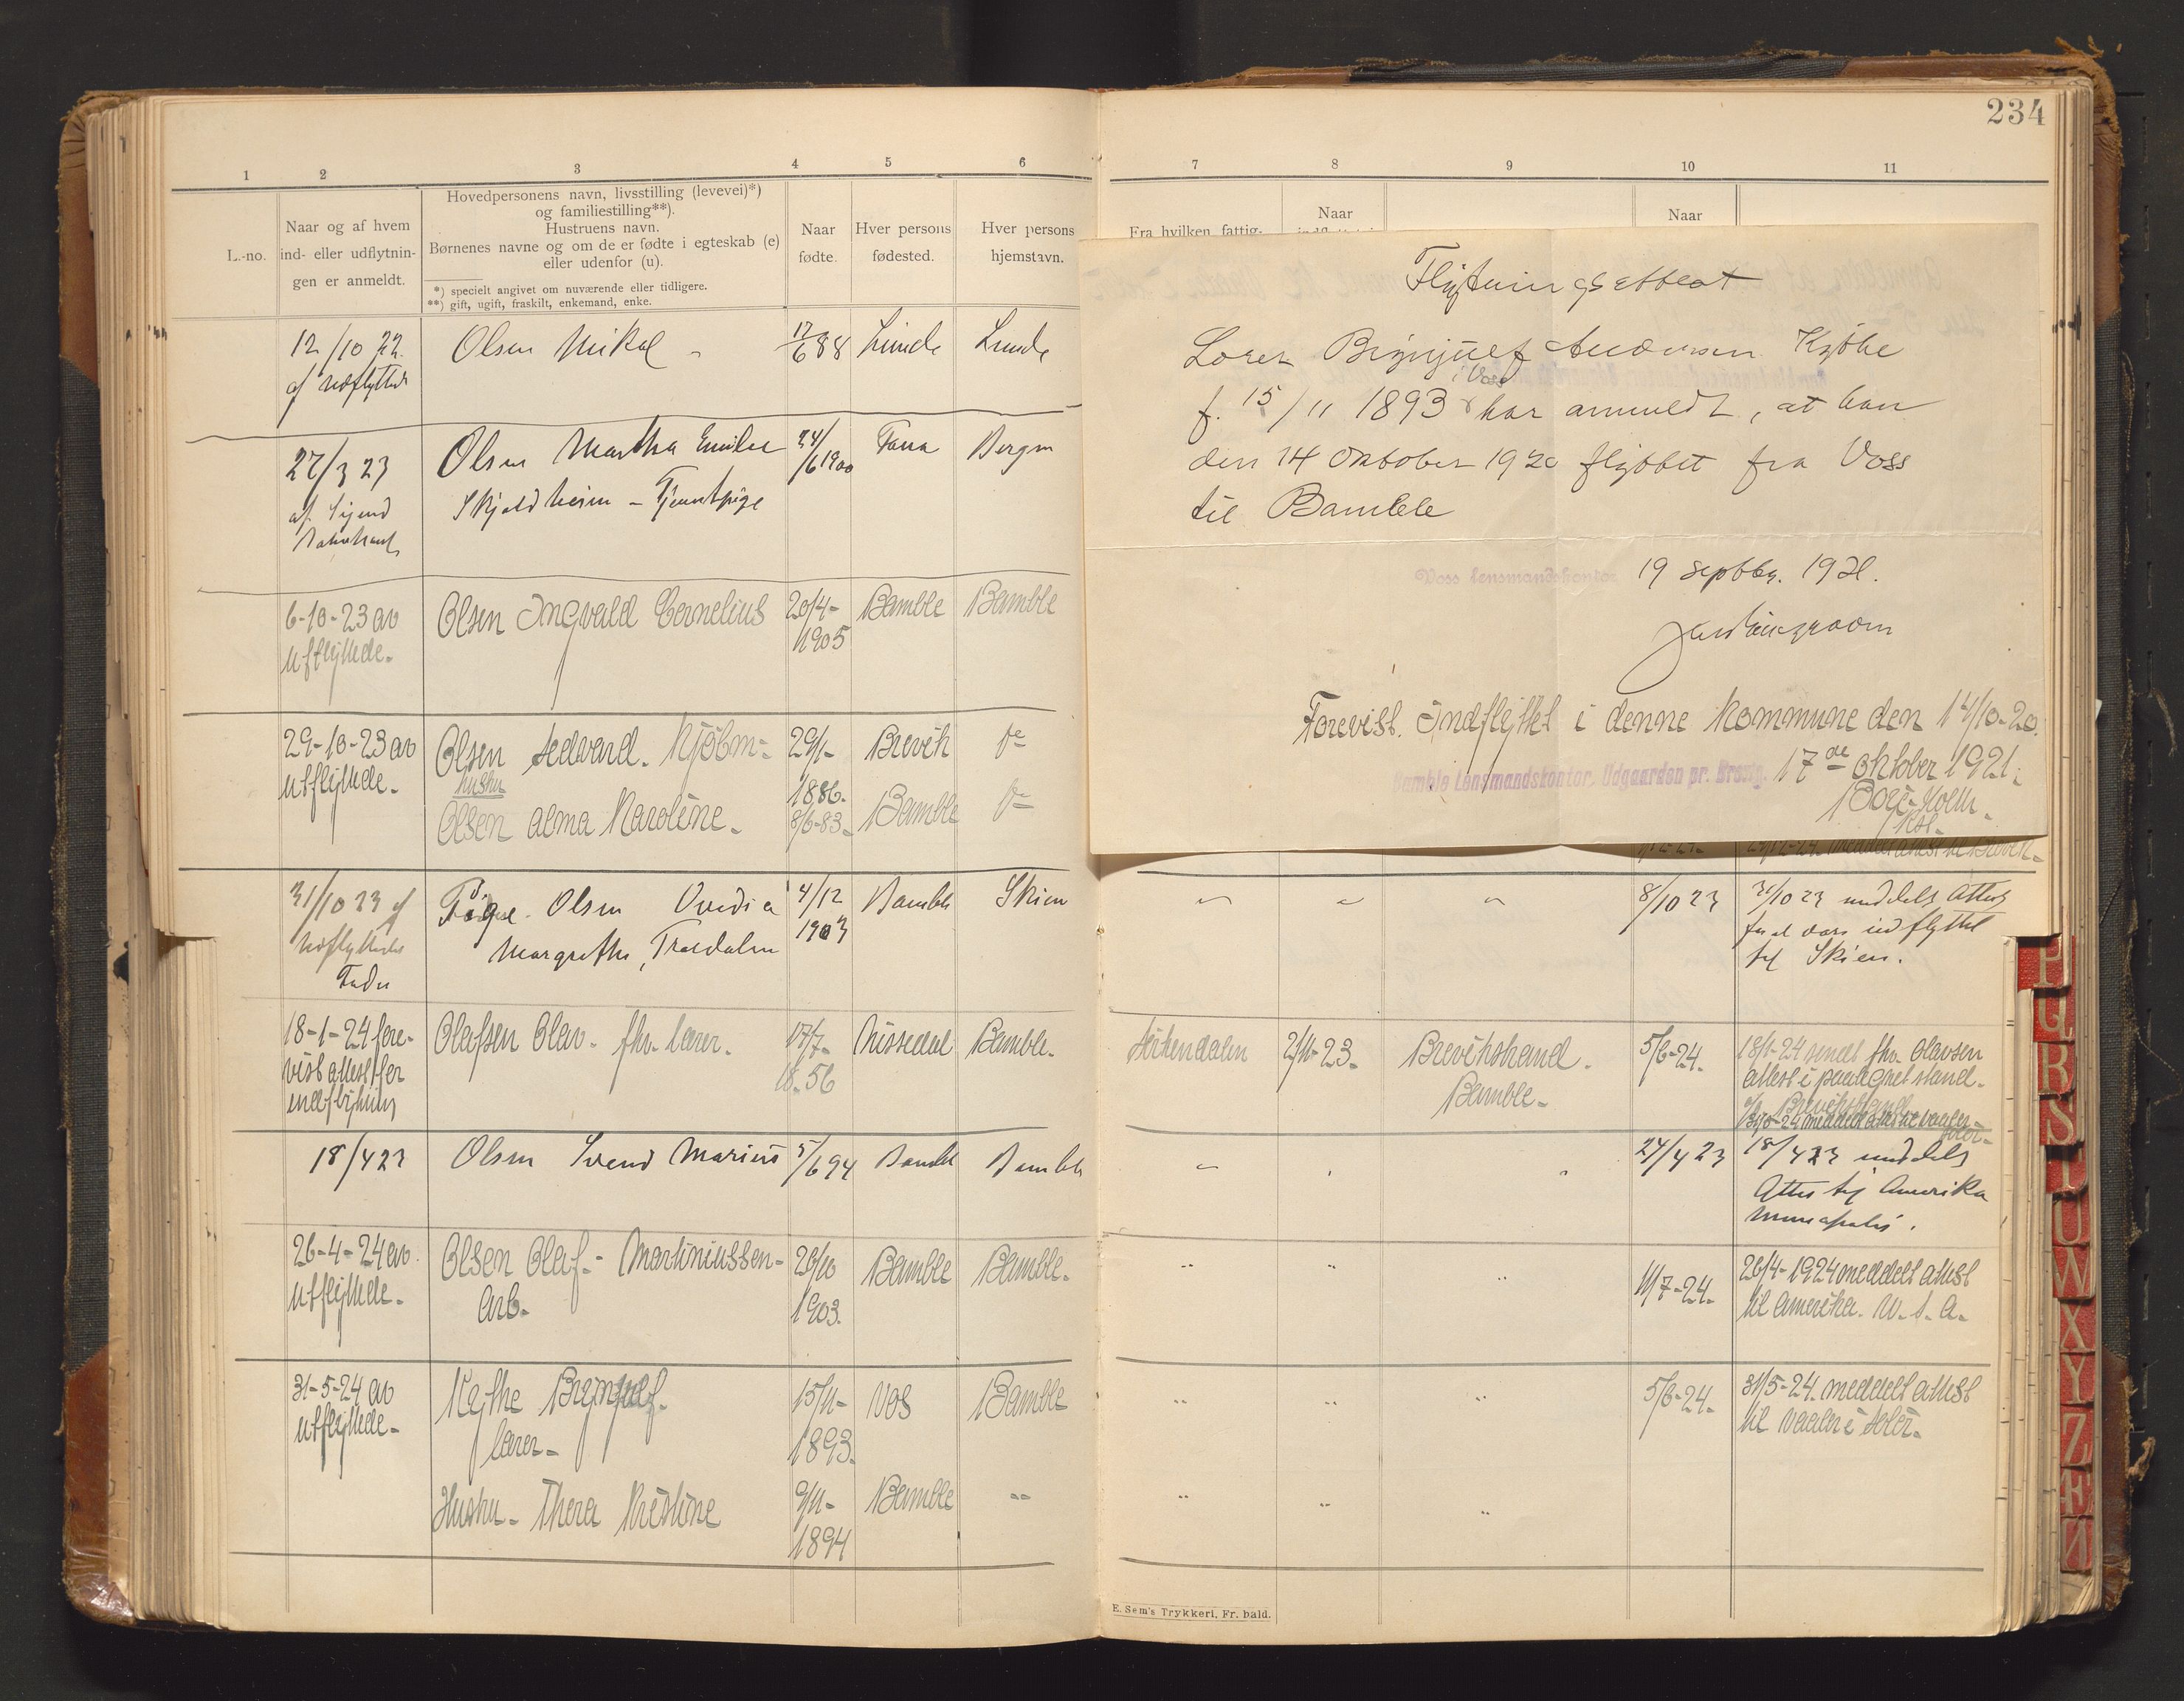 234
1 2 3 4 5 6
L.-no.
Naar og af hvem
ind- eller udflytnin-
gen er anmeldt.
Hovedpersonens navn, livsstilling (levevei)*)
og familiestilling**).
Hustruens navn.
Børnenes navne og om de er fødte i egteskab (e)
eller udenfor (u).
*) specielt angivet om nuværende eller tidligere.
**) gift, ugift, fraskilt, enkemand, enke.
Naar
fødte.
Hver persons
fødested.
Hver persons
hjemstavn.
12/10 22. Olsen Mikal 17/6 88 Lunde Lunde
27/3 23 Olsen Martha Emilie 24/6 1900 Fana Bergen
af
Skjoldheim - Tjenestpige
6-10-23 av Olsen Ingvald Cornelius 20/4- Bamble Bamble
utflyttede. 1905
29-10-23 av Olsen Edvard. Kjöbm- 29/1- Brevik
utflyttede. hushu 1886.
Olsen Alma Karoline. 8/6-83. Bamble
31/10 23 af Olsen Ovedia 4/12 Bamble Skien
Margrethe, Traadalen 1903
18-1-24 fore- Olafsen Olav. fhv. lærer. 17/7- Nissedal Bamble.
vist attest for 18.56
indflytning
18/4 23 Olsen Svend Marius 5/6 94 Bamble Bamble
26-4-24 av Olsen Olaf.- Martiniussen- 26/10 Bamble Bamble.
utflyttede. Arb. 1903.
31-5-24 av Kythe Brynjulf. 15/11- Vos Bamble
utflyttede. lærer- 1893.
Hushu- Thora Kristine 9/11- Bamble "
1894
7 8 9 10 11
Fra hvilken fattig-
Naar
Naar
Flytningsattest
Lærer Brynjulf Andersen Kythe
i Voss
f. 15/11 1893 har anmeldt, at han
den 14 Oktober 1920 flyttet fra Voss
til Bamble
Voss lensmandskontor 19 septbr. 1921.
Forevist. Indflyttet i denne kommune den 14/10-20.
Bamble Lensmandskontor, Udgaarden pr. Brevig. 17de oktober 1921.
" " " 8/10 23 31/10 23 meddels Attest
indflyttet
til Skien.
2/11-23. Brevikstrand. 5/6-24. 18/1-24 sendt fhv. Olavsen
Bamble. attest i paategnet stand.
Brevikstrand
" 24/4 23 18/4 23 meddels
Attest til Amerika
" " " 11/7-24. 26/4-1924 meddelt attest
til Amerika. U.S.A.
" " " 5/6-24. 31/5-24. meddelt attest
til Vaaler i Solör.
" " "
E. Sem's Trykkeri, Fr. hald.
P
Q
R
S
T
U
W
X
Y
Z
Æ